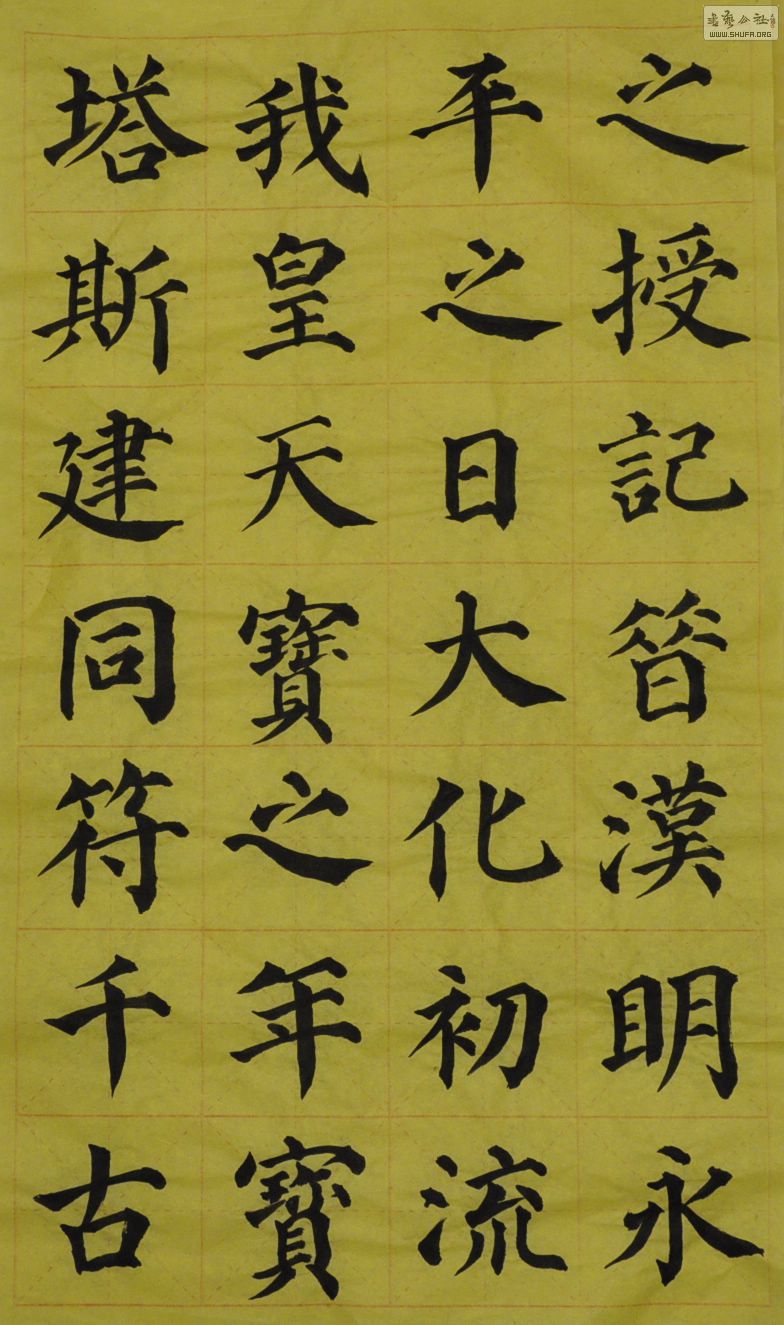 之授記昔漢明永
平之日大化初流
我皇天寶之年寶
塔斯建同符千古
書藝公社
WWW.SHUFA.ORG